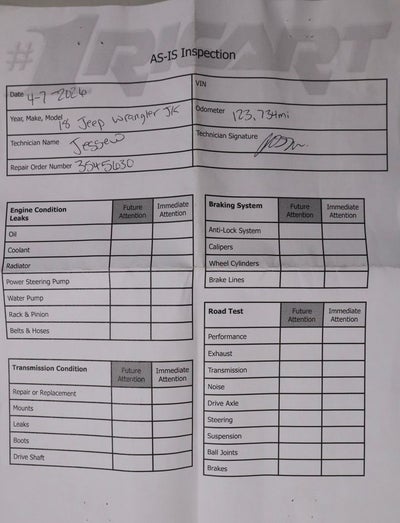 #1 RICART
AS-IS Inspection
Date 4-7-2026
VIN
Year, Make, Model 18 Jeep Wrangler JK
Odometer 123,734mi
Technician Name Jessew
Technician Signature
Repair Order Number 3545630
Engine Condition Future Attention Immediate Attention
Leaks
Oil
Coolant
Radiator
Power Steering Pump
Water Pump
Rack & Pinion
Belts & Hoses
Transmission Condition Future Attention Immediate Attention
Repair or Replacement
Mounts
Leaks
Boots
Drive Shaft
Braking System Future Attention Immediate Attention
Anti-Lock System
Calipers
Wheel Cylinders
Brake Lines
Road Test Future Attention Immediate Attention
Performance
Exhaust
Transmission
Noise
Drive Axle
Steering
Suspension
Ball Joints
Brakes